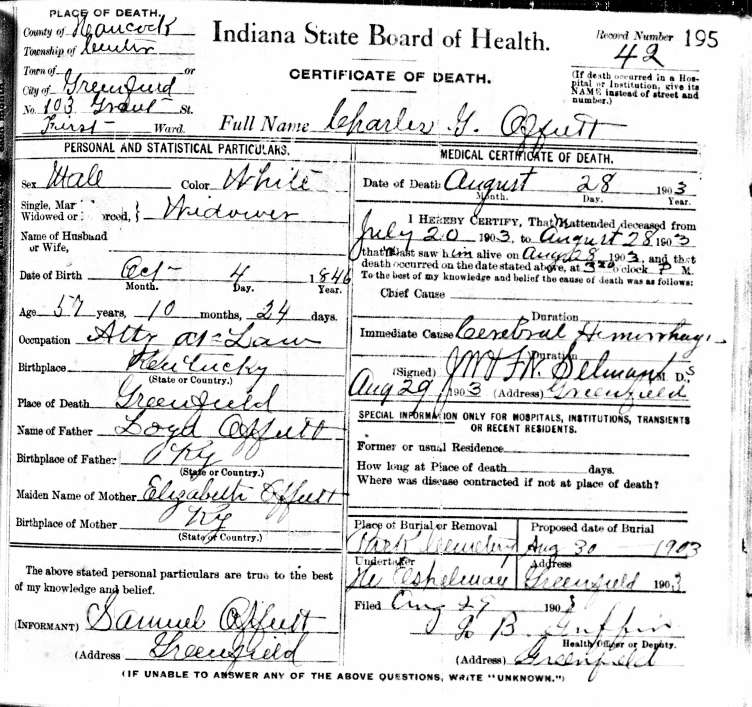 PLACE OF DEATH.
County of Hancock
Township of Center
Town of or
City of Greenfield
No. 103 Grant St.
First Ward.
Indiana State Board of Health.
CERTIFICATE OF DEATH.
Record Number 195
42
(If death occurred in a Hos-
pital or Institution, give its
NAME instead of street and
number.)
Full Name Charles G. Offutt
PERSONAL AND STATISTICAL PARTICULARS.
Sex Male Color White
Single, Mar
Widowed or orced, } Widower
Name of Husband
or Wife,
Date of Birth Oct 4 1846
Month. Day. Year.
Age 57 years, 10 months, 24 days.
Occupation Atty at Law
Birthplace Kentucky
(State or Country.)
Place of Death Greenfield
Name of Father Loyd Offutt
Birthplace of Father Ky
(State or Country.)
Maiden Name of Mother Elizabeth Offutt
Birthplace of Mother Ky
(State or Country.)
The above stated personal particulars are true to the best
of my knowledge and belief.
(INFORMANT) Samuel Offutt
(Address Greenfield
MEDICAL CERTIFICATE OF DEATH.
Date of Death August 28 1903
Month. Day. Year.
I HEREBY CERTIFY, That attended deceased from
July 20 1903, to August 28 1903
that last saw him alive on Aug 28 1903, and that
death occurred on the date stated above, at 3 20 o'clock P M.
To the best of my knowledge and belief the cause of death was as follows:
Chief Cause
Duration
Immediate Cause Cerebral Hemorrhage
Duration
(Signed) Selman M. D.,s
Aug 29, 1903 (Address) Greenfield
SPECIAL INFORMATION ONLY FOR HOSPITALS, INSTITUTIONS, TRANSIENTS
OR RECENT RESIDENTS.
Former or usual Residence
How long at Place of death days.
Where was disease contracted if not at place of death?
Place of Burial or Removal Proposed date of Burial
Park Cemetery Aug 30 1903
Undertaker Address
Greenfield 1903
Filed Aug 29 1903
B. Griffin
Health Officer or Deputy.
(Address) Greenfield
(IF UNABLE TO ANSWER ANY OF THE ABOVE QUESTIONS, WRITE "UNKNOWN.")